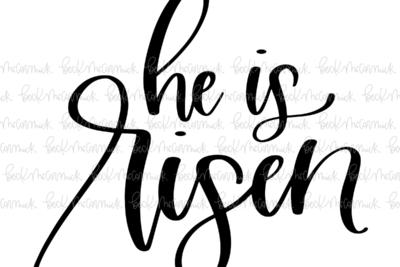 he is
risen